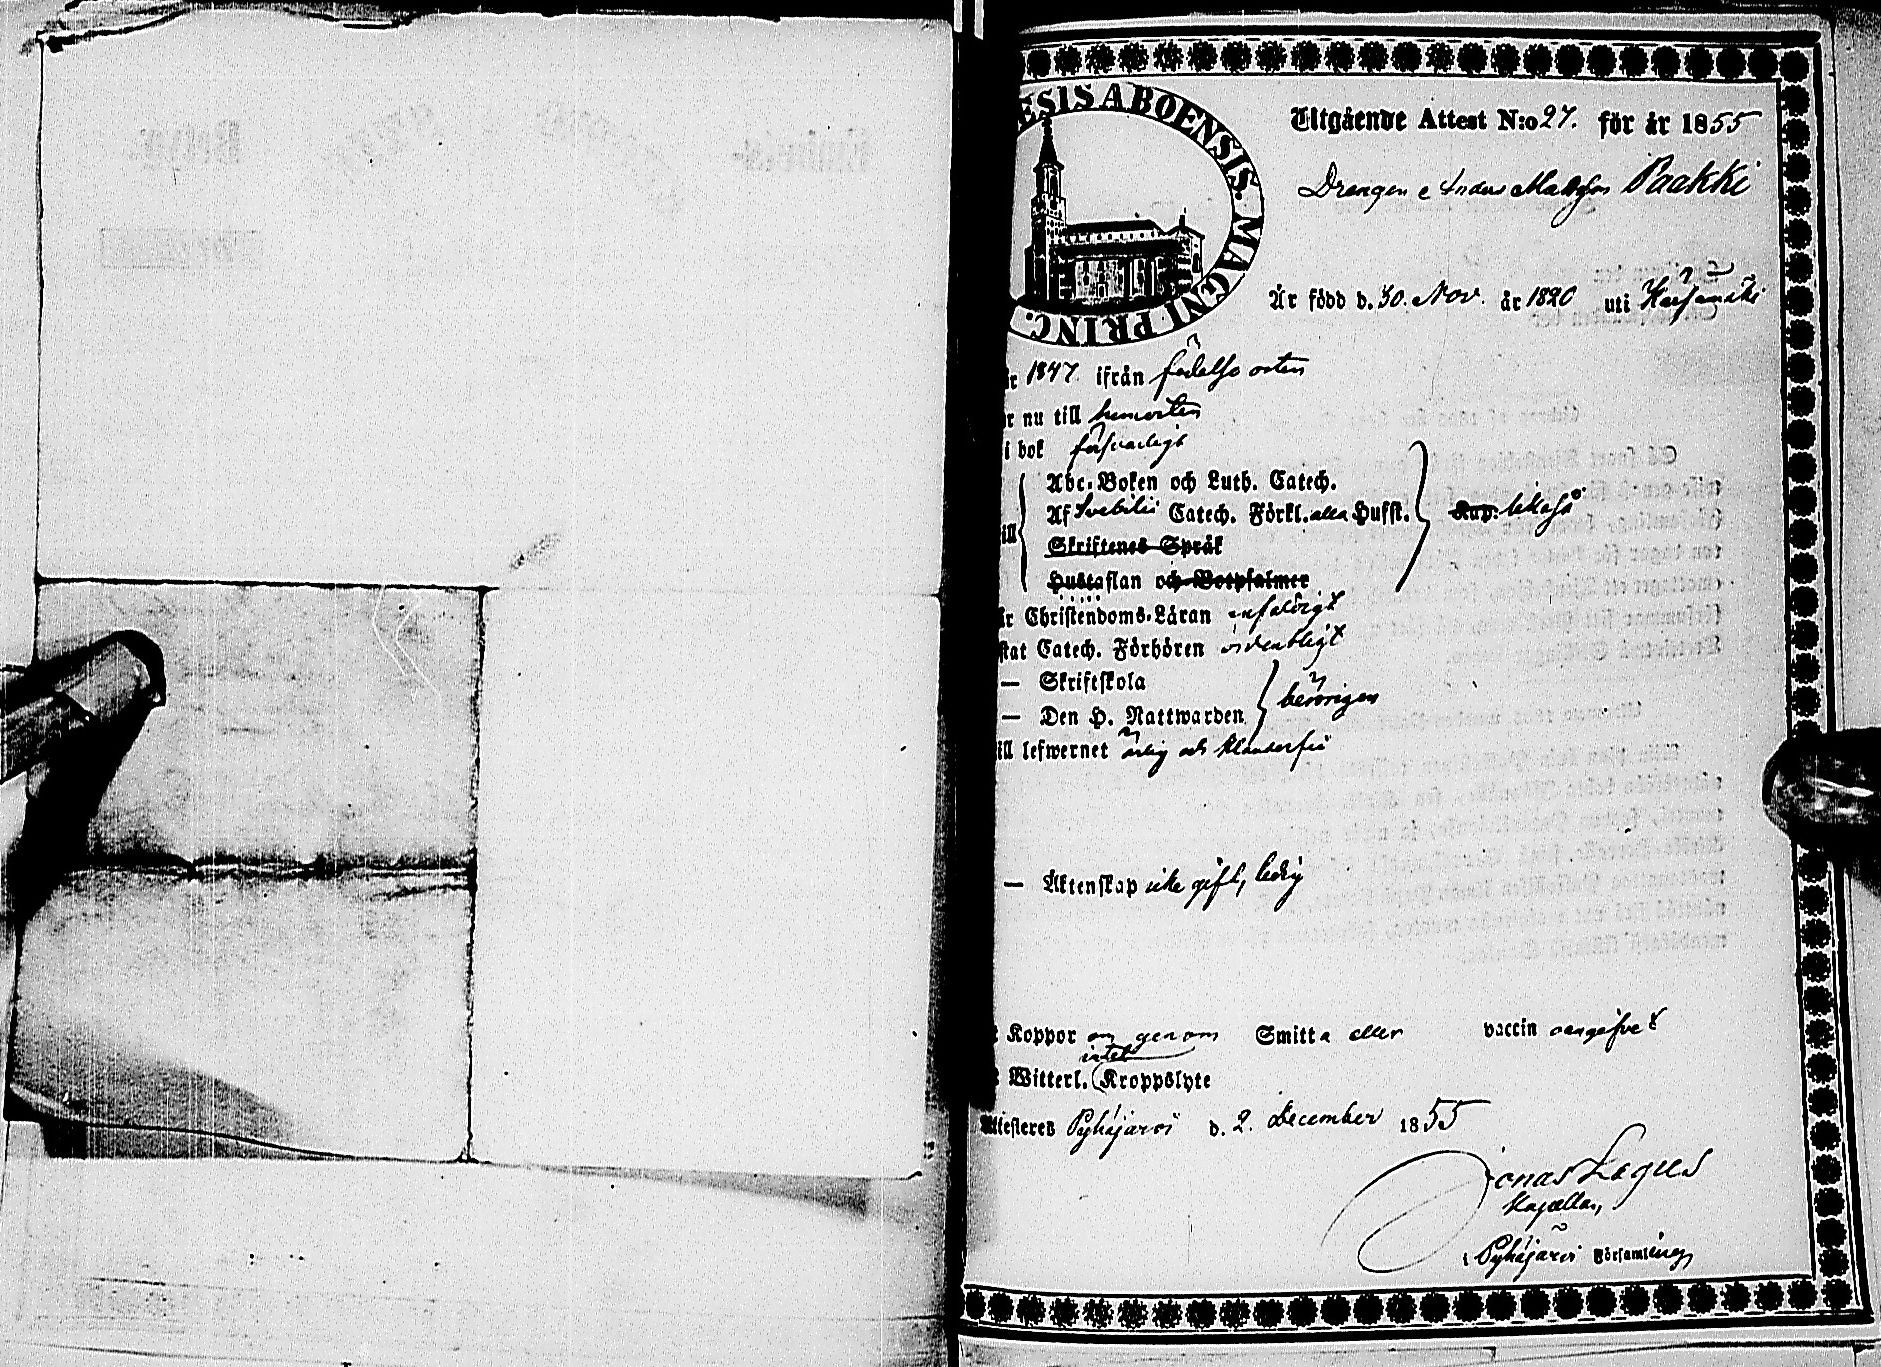 ESIS ABOENSIS. MAGNI PRINC.
Utgående Attest N:o 27. för år 1855
Drengen Anders Mattsson Paakki
Är född d. 30. Nov. år 1820 uti Kärsämäki
år 1847 ifrån födelse orten
r nu till hemorten
i bok försvarligt
Abc-Boken och Luth. Catech.
ill Af Svebilii Catech. Förkl. alla Hufst. Kap: likaså
Skriftenes Språk
Hustaflan och Botpsalmer
är Christendoms-Läran enfaldigt
stat Catech. Förhören ordentligt
— Skriftskola
— Den H. Nattwarden } behörigen
ill lefwernet ärlig och klanderfri
— Äktenskap icke gift, ledig
t Koppor om genom Smitta eller vaccin oangifvet
intet
t Witterl. Kroppslyte
Attesteres Pyhäjärvi d. 2. December 1855
Jonas Lagus
Kapellan,
i Pyhäjärvi Församling